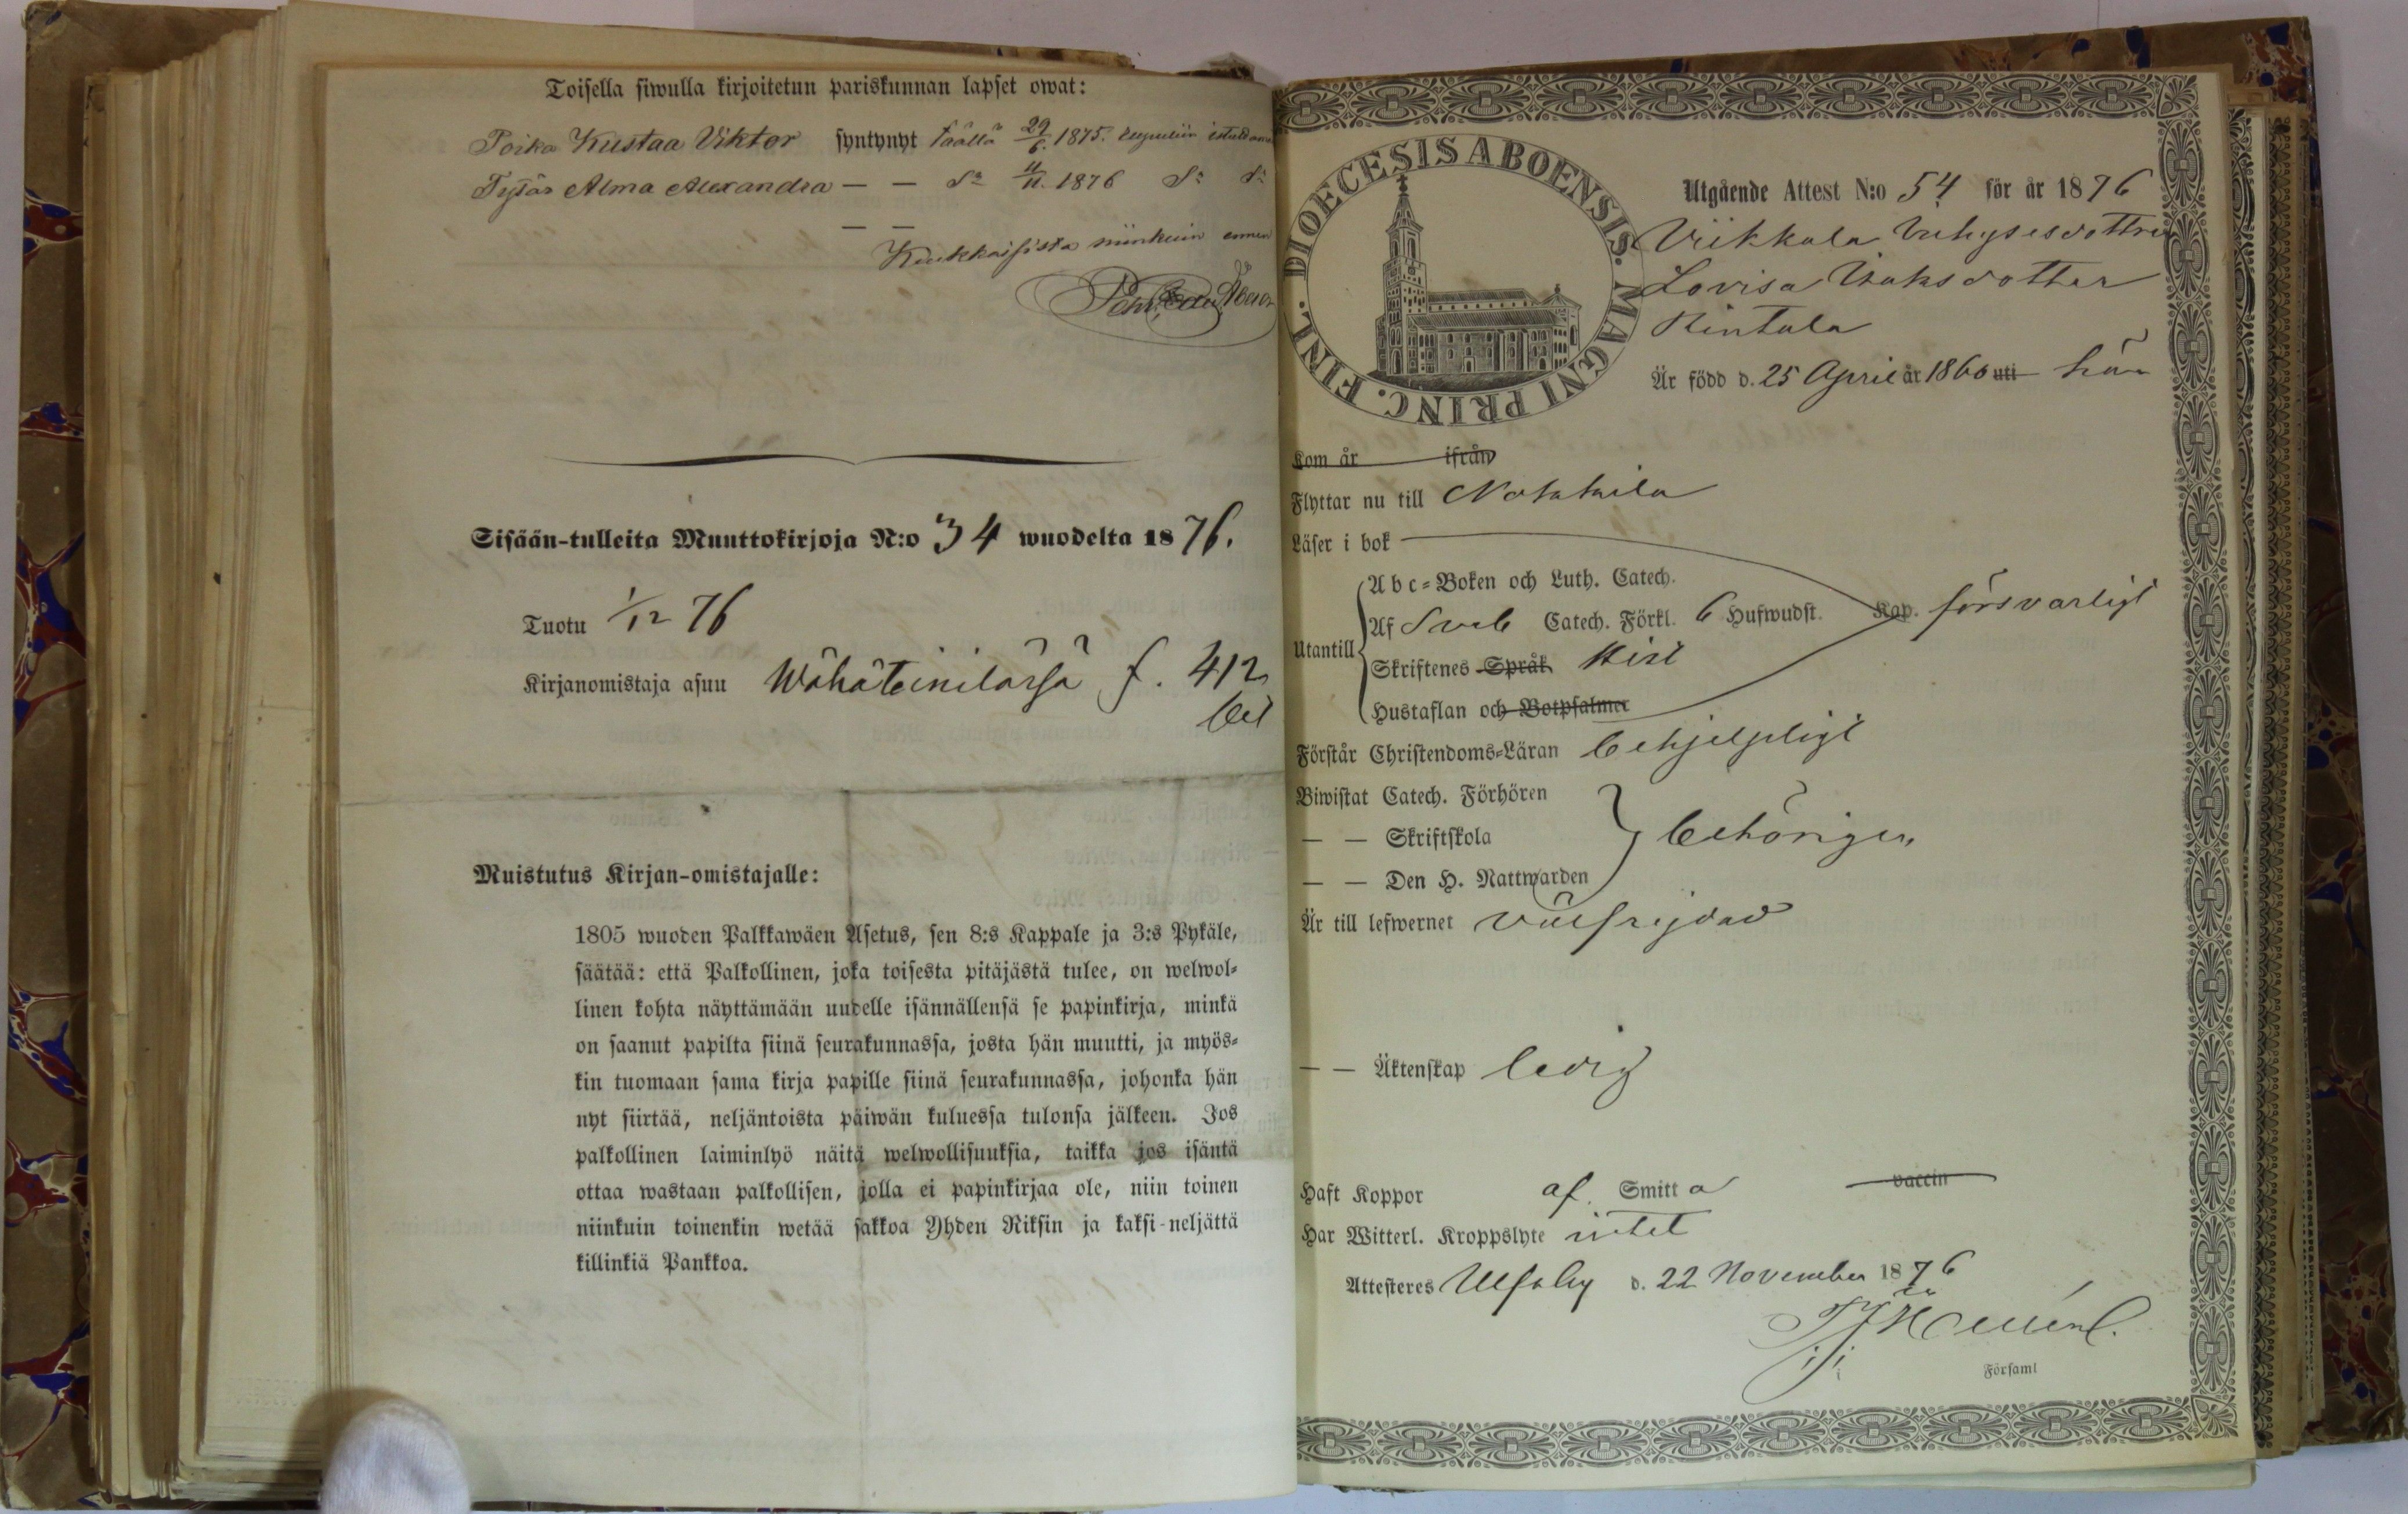 Toisella siwulla kirjoitetun pariskunnan lapset owat:
Poika Kustaa Viktor syntynyt täällä 29/6. 1875.
Tytär Alma Alexandra — — Do 4/11. 1876 Do Do
— —
Kuukkaisista niinkuin ennen
Sisään-tulleita Muuttokirjoja N:o 34 wuodelta 1876.
Tuotu 1/12 76
Kirjanomistaja asuu Wähäteinilässä f. 412
Muistutus Kirjan-omistajalle:
1805 wuoden Palkkawäen Asetus, sen 8:s Kappale ja 3:s Pykäle,
säätää: että Palkollinen, joka toisesta pitäjästä tulee, on welwol-
linen kohta näyttämään uudelle isännällensä se papinkirja, minkä
on saanut papilta siinä seurakunnassa, josta hän muutti, ja myös-
kin tuomaan sama kirja papille siinä seurakunnassa, johonka hän
nyt siirtää, neljäntoista päiwän kuluessa tulonsa jälkeen. Jos
palkollinen laiminlyö näitä welwollisuuksia, taikka jos isäntä
ottaa wastaan palkollisen, jolla ei papinkirjaa ole, niin toinen
niinkuin toinenkin wetää sakkoa Yhden Riksin ja kaksi-neljättä
killinkiä Pankkoa.
DIOECESIS ABOENSIS. MAGNI PRINC. FINL.
Utgående Attest N:o 54 för år 1876
Viikkala
Lovisa Isaksdotter
Rintala
Är född d. 25 April år 1860 uti här
Kom år ifrån
Flyttar nu till Nakkila
Läser i bok
Utantill
Abc-Boken och Luth. Catech.
Af Sveb Catech. Förkl. 6 Hufwudst. Kap. försvarligt
Skriftenes Språk Hist
Hustaflan och Botpsalmer
Förstår Christendoms-Läran behjelpligt
Biwistat Catech. Förhören
— — Skriftskola behörigen
— — Den H. Nattwarden
Är till lefwernet välfrejdad
— — Äktenskap ledig
Haft Koppor af Smitta vaccin
Har Witterl. Kroppslyte intet
Attesteres Ulfsby d. 22 November 1876
Församl